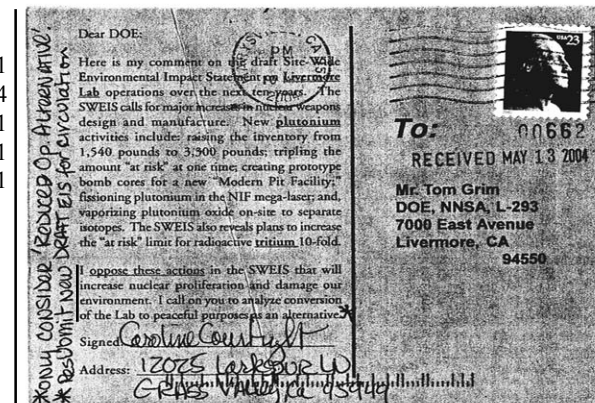 1
4
1
1
1
*ONLY CONSIDER 'REDUCED OP ALTERNATIVE'
* Resubmit NEW DRAFT EIS for circulation
Dear DOE:
Here is my comment on the draft Site-Wide
Environmental Impact Statement on Livermore
Lab operations over the next ten years. The
SWEIS calls for major increases in nuclear weapons
design and manufacture. New plutonium
activities include: raising the inventory from
1,540 pounds to 3,300 pounds; tripling the
amount "at risk" at one time; creating prototype
bomb cores for a new "Modern Pit Facility;"
fissioning plutonium in the NIF mega-laser; and,
vaporizing plutonium oxide on-site to separate
isotopes. The SWEIS also reveals plans to increase
the "at risk" limit for radioactive tritium 10-fold.
I oppose these actions in the SWEIS that will
increase nuclear proliferation and damage our
environment. I call on you to analyze conversion
of the Lab to peaceful purposes as an alternative.*
Signed Caroline
Address: 12025
GRASS VALLEY, Ca 95949
PM
USA 23
To:
00662
RECEIVED MAY 13 2004
Mr. Tom Grim
DOE, NNSA, L-293
7000 East Avenue
Livermore, CA
94550